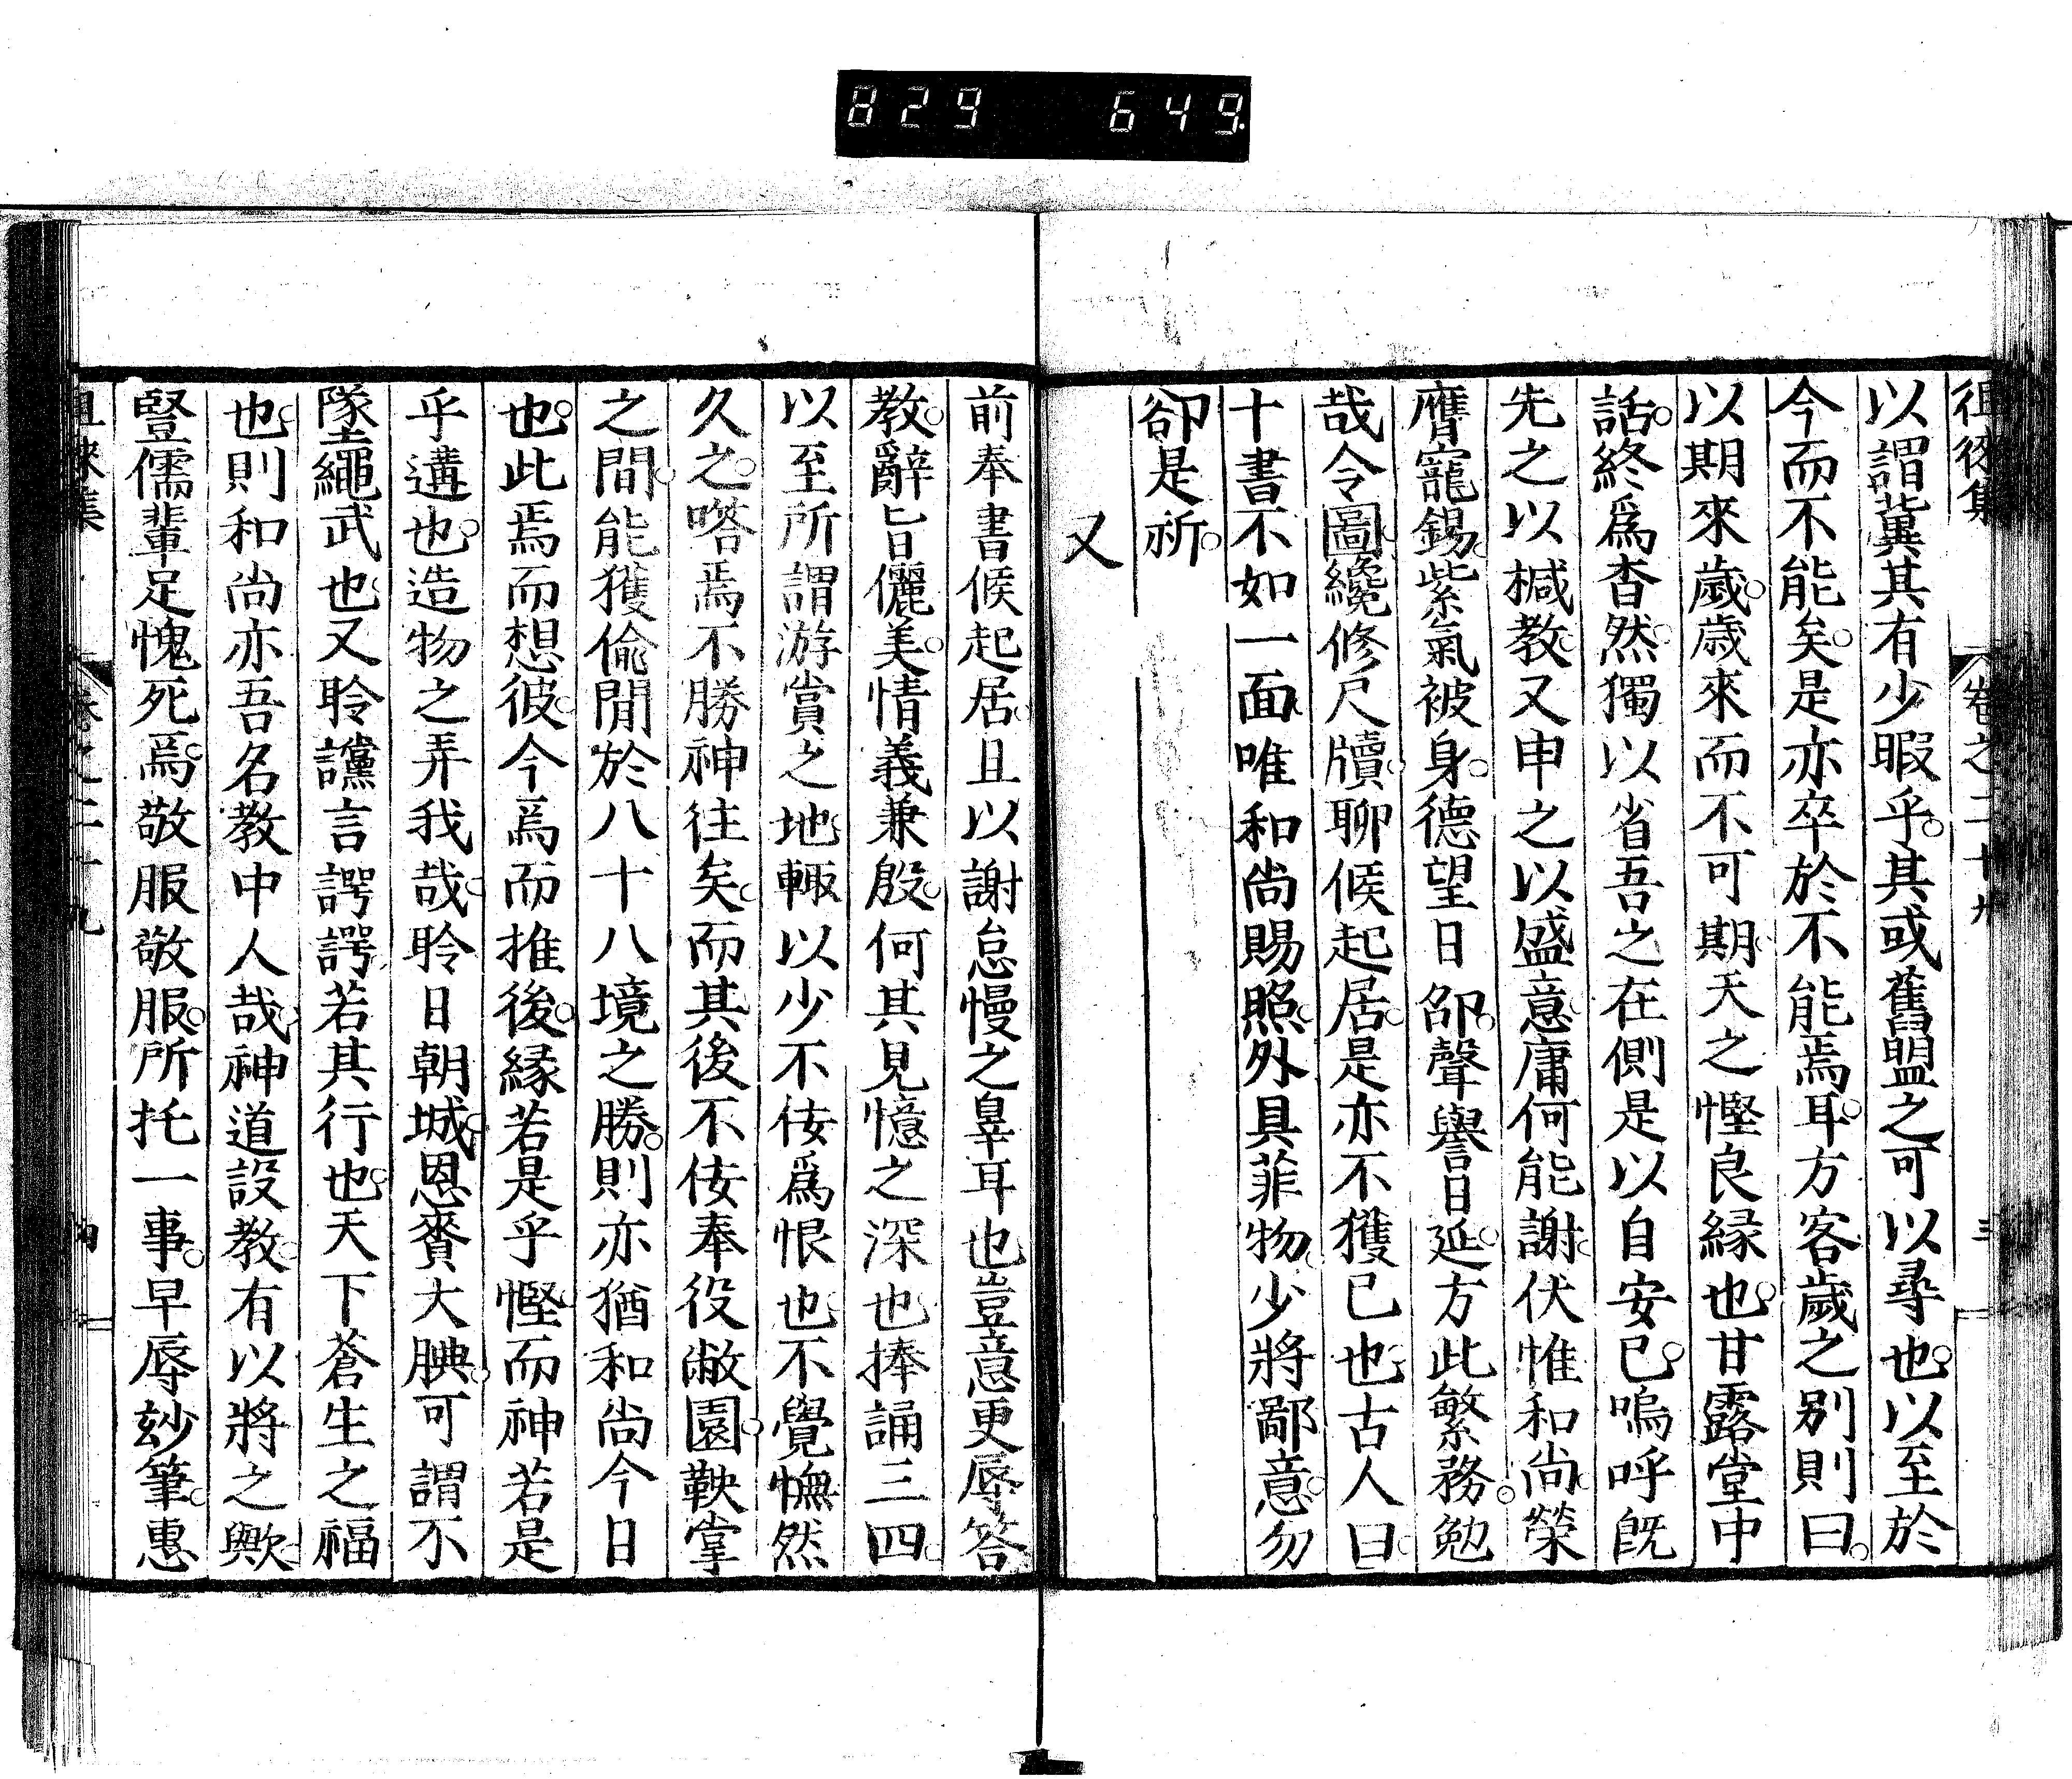 829 649
徂徠集 卷之二十九 三
以謂冀其有少暇乎。其或舊盟之可以尋也。以至於
今而不能矣。是亦卒於不能焉耳。方客歲之別則曰。
以期來歲。歲來而不可期。天之慳良緣也。甘露堂中
話。終爲杳然。獨以省吾之在側是以自安已。嗚呼旣
先之以椷教。又申之以盛意。庸何能謝。伏惟和尚。榮
膺寵錫。紫氣被身。德望日卲。聲譽日延。方此繁務。勉
哉令圖。纔修尺牘。聊候起居。是亦不獲已也。古人曰。
十書不如一面。唯和尚賜照。外具菲物。少將鄙意。勿
卻是祈。
又
前奉書候起居。且以謝怠慢之辠耳也。豈意更辱答
教。辭旨儷美。情義兼殷。何其見憶之深也。捧誦三四。
以至所謂游賞之地。輙以少不佞爲恨也。不覺憮然
久之。嗒焉不勝神往矣。而其後不佞奉役敝園。鞅掌
之間。能獲偸閒於八十八境之勝。則亦猶和尚今日
也。此焉而想彼。今焉而推後。緣若是乎慳而神若是
乎遘也。造物之弄我哉。聆日朝城。恩賚大腆。可謂不
墜繩武也。又聆讜言諤諤若其行也。天下蒼生之福
也。則和尚亦吾名教中人哉。神道設教。有以將之歟。
豎儒輩足愧死焉。敬服敬服。所托一事。早辱玅筆。惠
徂徠集 卷之二十九 四